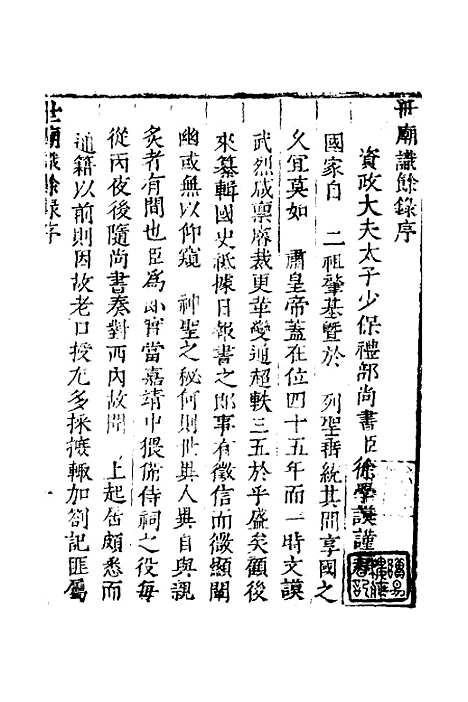 世廟識餘錄序
資政大夫太子少保禮部尚書臣徐學謨謹
國家自 二祖肇基曁於 列聖晉統其間享國之
久宜莫如 肅皇帝蓋在位四十五年而一時文謨
武烈咸禀廟裁更革變通超軼三五於乎盛矣顧後
來纂輯國史祗據日報書之即事有徵信而微顯闡
幽或無以仰窺 神聖之秘何則世異人異自與親
炙者有間也臣為郎實當嘉靖中猥備侍祠之役每
從丙夜後隨尚書奏對西內故聞 上起居頗悉而
通籍以前則因故老口授尤多採摭輒加劄記匪屬
世廟識餘錄序
一